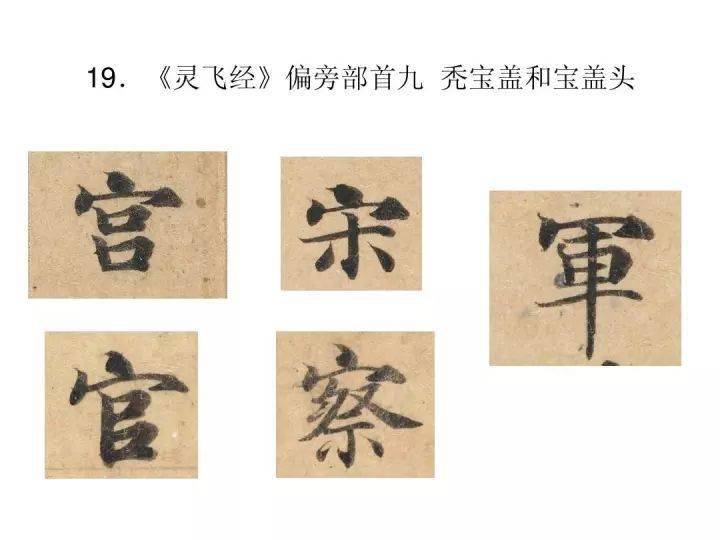 19．《灵飞经》偏旁部首九 秃宝盖和宝盖头
宫 宋 軍
官 察